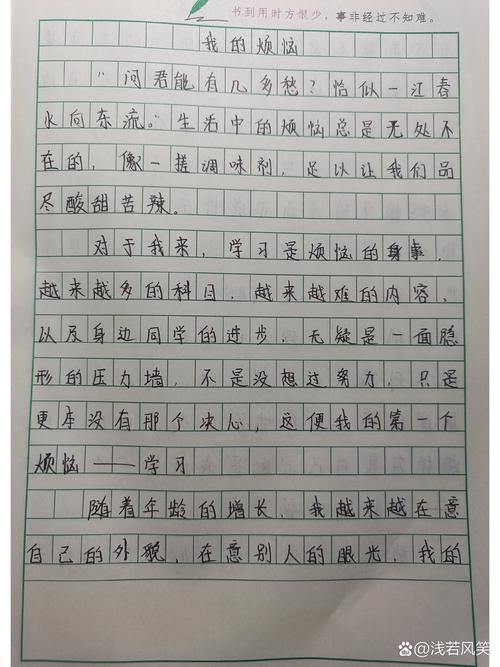 书到用时方恨少，事非经过不知难。
我的烦恼
“问君能有几多愁？恰似一江春
水向东流。”生活中的烦恼总是无处不
在的，像一搓调味剂，足以让我们品
尽酸甜苦辣。
对于我来，学习是烦恼的身事，
越来越多的科目，越来越难的内容，
以及身边同学的进步，无疑是一面隐
形的压力墙，不是没想过努力，只是
更本没有那个决心，这便我的第一个
烦恼——学习
随着年龄的增长，我越来越在意
自己的外貌，在意别人的眼光，我的
@浅若风笑